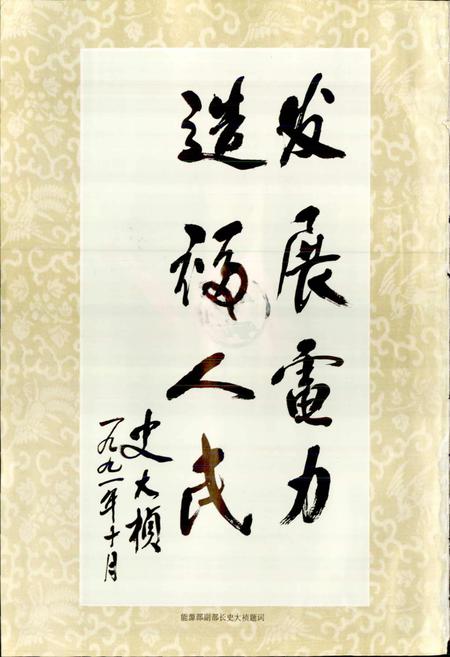 发展電力
造福人民
史大楨
一九九一年十月
能源部副部长史大桢题词